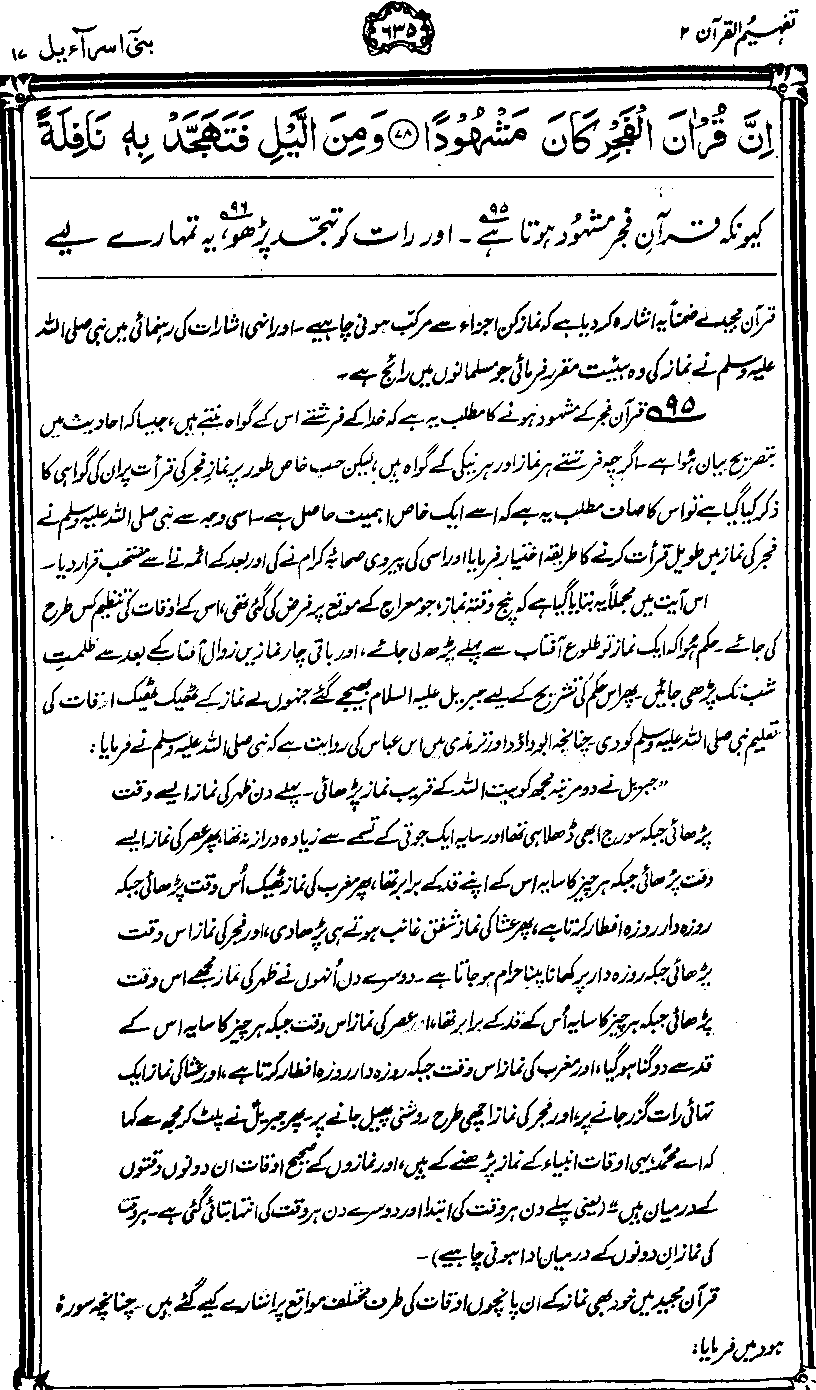 تفہیم القرآن ۲
۶۳۵
بنی اسرآءیل ۱۷
اِنَّ قُرْاٰنَ الْفَجْرِ كَانَ مَشْهُوْدًا ﴿۷۸﴾ وَمِنَ الَّيْلِ فَتَهَجَّدْ بِهٖ نَافِلَةً
کیونکہ قرآنِ فجر مشہُود ہوتا ہے۹۵۔ اور رات کو تہجّد پڑھو،۹۶ یہ تمہارے لیے
قرآن مجید نے ضمناً یہ اشارہ کر دیا ہے کہ نماز کن اجزاء سے مرکب ہونی چاہیے۔ اور انہی اشارات کی رہنمائی میں نبی صلی اللہ
علیہ وسلم نے نماز کی وہ ہیئت مقرر فرمائی جو مسلمانوں میں رائج ہے۔
۹۵ قرآن فجر کے مشہود ہونے کا مطلب یہ ہے کہ خدا کے فرشتے اس کے گواہ بنتے ہیں، جیسا کہ احادیث میں
بتصریح بیان ہوا ہے۔ اگرچہ فرشتے ہر نماز اور ہر نیکی کے گواہ ہیں، لیکن جب خاص طور پر نماز فجر کی قرأت پر ان کی گواہی کا
ذکر کیا گیا ہے تو اس کا صاف مطلب یہ ہے کہ اسے ایک خاص اہمیت حاصل ہے۔ اسی وجہ سے نبی صلی اللہ علیہ وسلم نے
فجر کی نماز میں طویل قرأت کرنے کا طریقہ اختیار فرمایا اور اسی کی پیروی صحابہ کرام نے کی اور بعد کے ائمہ نے اسے مستحب قرار دیا۔
اس آیت میں مجملاً یہ بتایا گیا ہے کہ پنج وقتہ نماز، جو معراج کے موقع پر فرض کی گئی تھی، اس کے اوقات کی تنظیم کس طرح
کی جائے۔ حکم ہوا کہ ایک نماز تو طلوع آفتاب سے پہلے پڑھ لی جائے، اور باقی چار نمازیں زوال آفتاب کے بعد سے ظلمتِ
شب تک پڑھی جائیں۔ پھر اس حکم کی تشریح کے لیے جبریل علیہ السلام بھیجے گئے جنہوں نے نماز کے ٹھیک ٹھیک اوقات کی
تعلیم نبی صلی اللہ علیہ وسلم کو دی۔ چنانچہ ابوداؤد اور ترمذی میں ابن عباس کی روایت ہے کہ نبی صلی اللہ علیہ وسلم نے فرمایا:
"جبریل نے دو مرتبہ مجھ کو بیت اللہ کے قریب نماز پڑھائی۔ پہلے دن ظہر کی نماز ایسے وقت
پڑھائی جبکہ سورج ابھی ڈھلا ہی تھا اور سایہ ایک جوتی کے تسمے سے زیادہ دراز نہ تھا، پھر عصر کی نماز ایسے
وقت پڑھائی جبکہ ہر چیز کا سایہ اس کے اپنے قد کے برابر تھا، پھر مغرب کی نماز ٹھیک اُس وقت پڑھائی جبکہ
روزہ دار روزہ افطار کرتا ہے، پھر عشا کی نماز شفق غائب ہوتے ہی پڑھا دی، اور فجر کی نماز اس وقت
پڑھائی جبکہ روزہ دار پر کھانا پینا حرام ہو جاتا ہے۔ دوسرے دن اُنہوں نے ظہر کی نماز مجھے اس وقت
پڑھائی جبکہ ہر چیز کا سایہ اُس کے قد کے برابر تھا، اور عصر کی نماز اس وقت جبکہ ہر چیز کا سایہ اس کے
قد سے دوگنا ہو گیا، اور مغرب کی نماز اس وقت جبکہ روزہ دار روزہ افطار کرتا ہے، اور عشا کی نماز ایک
تہائی رات گزر جانے پر، اور فجر کی نماز اچھی طرح روشنی پھیل جانے پر۔ پھر جبریلؑ نے پلٹ کر مجھ سے کہا
کہ اے محمدؐ، یہی اوقات انبیاء کے نماز پڑھنے کے ہیں، اور نمازوں کے صحیح اوقات ان دونوں وقتوں
کے درمیان ہیں" (یعنی پہلے دن ہر وقت کی ابتدا اور دوسرے دن ہر وقت کی انتہا بتائی گئی ہے۔ ہر وقت
کی نماز ان دونوں کے درمیان ادا ہونی چاہیے)۔
قرآن مجید میں خود بھی نماز کے ان پانچوں اوقات کی طرف مختلف مواقع پر اشارے کیے گئے ہیں۔ چنانچہ سورۂ
ہود میں فرمایا: